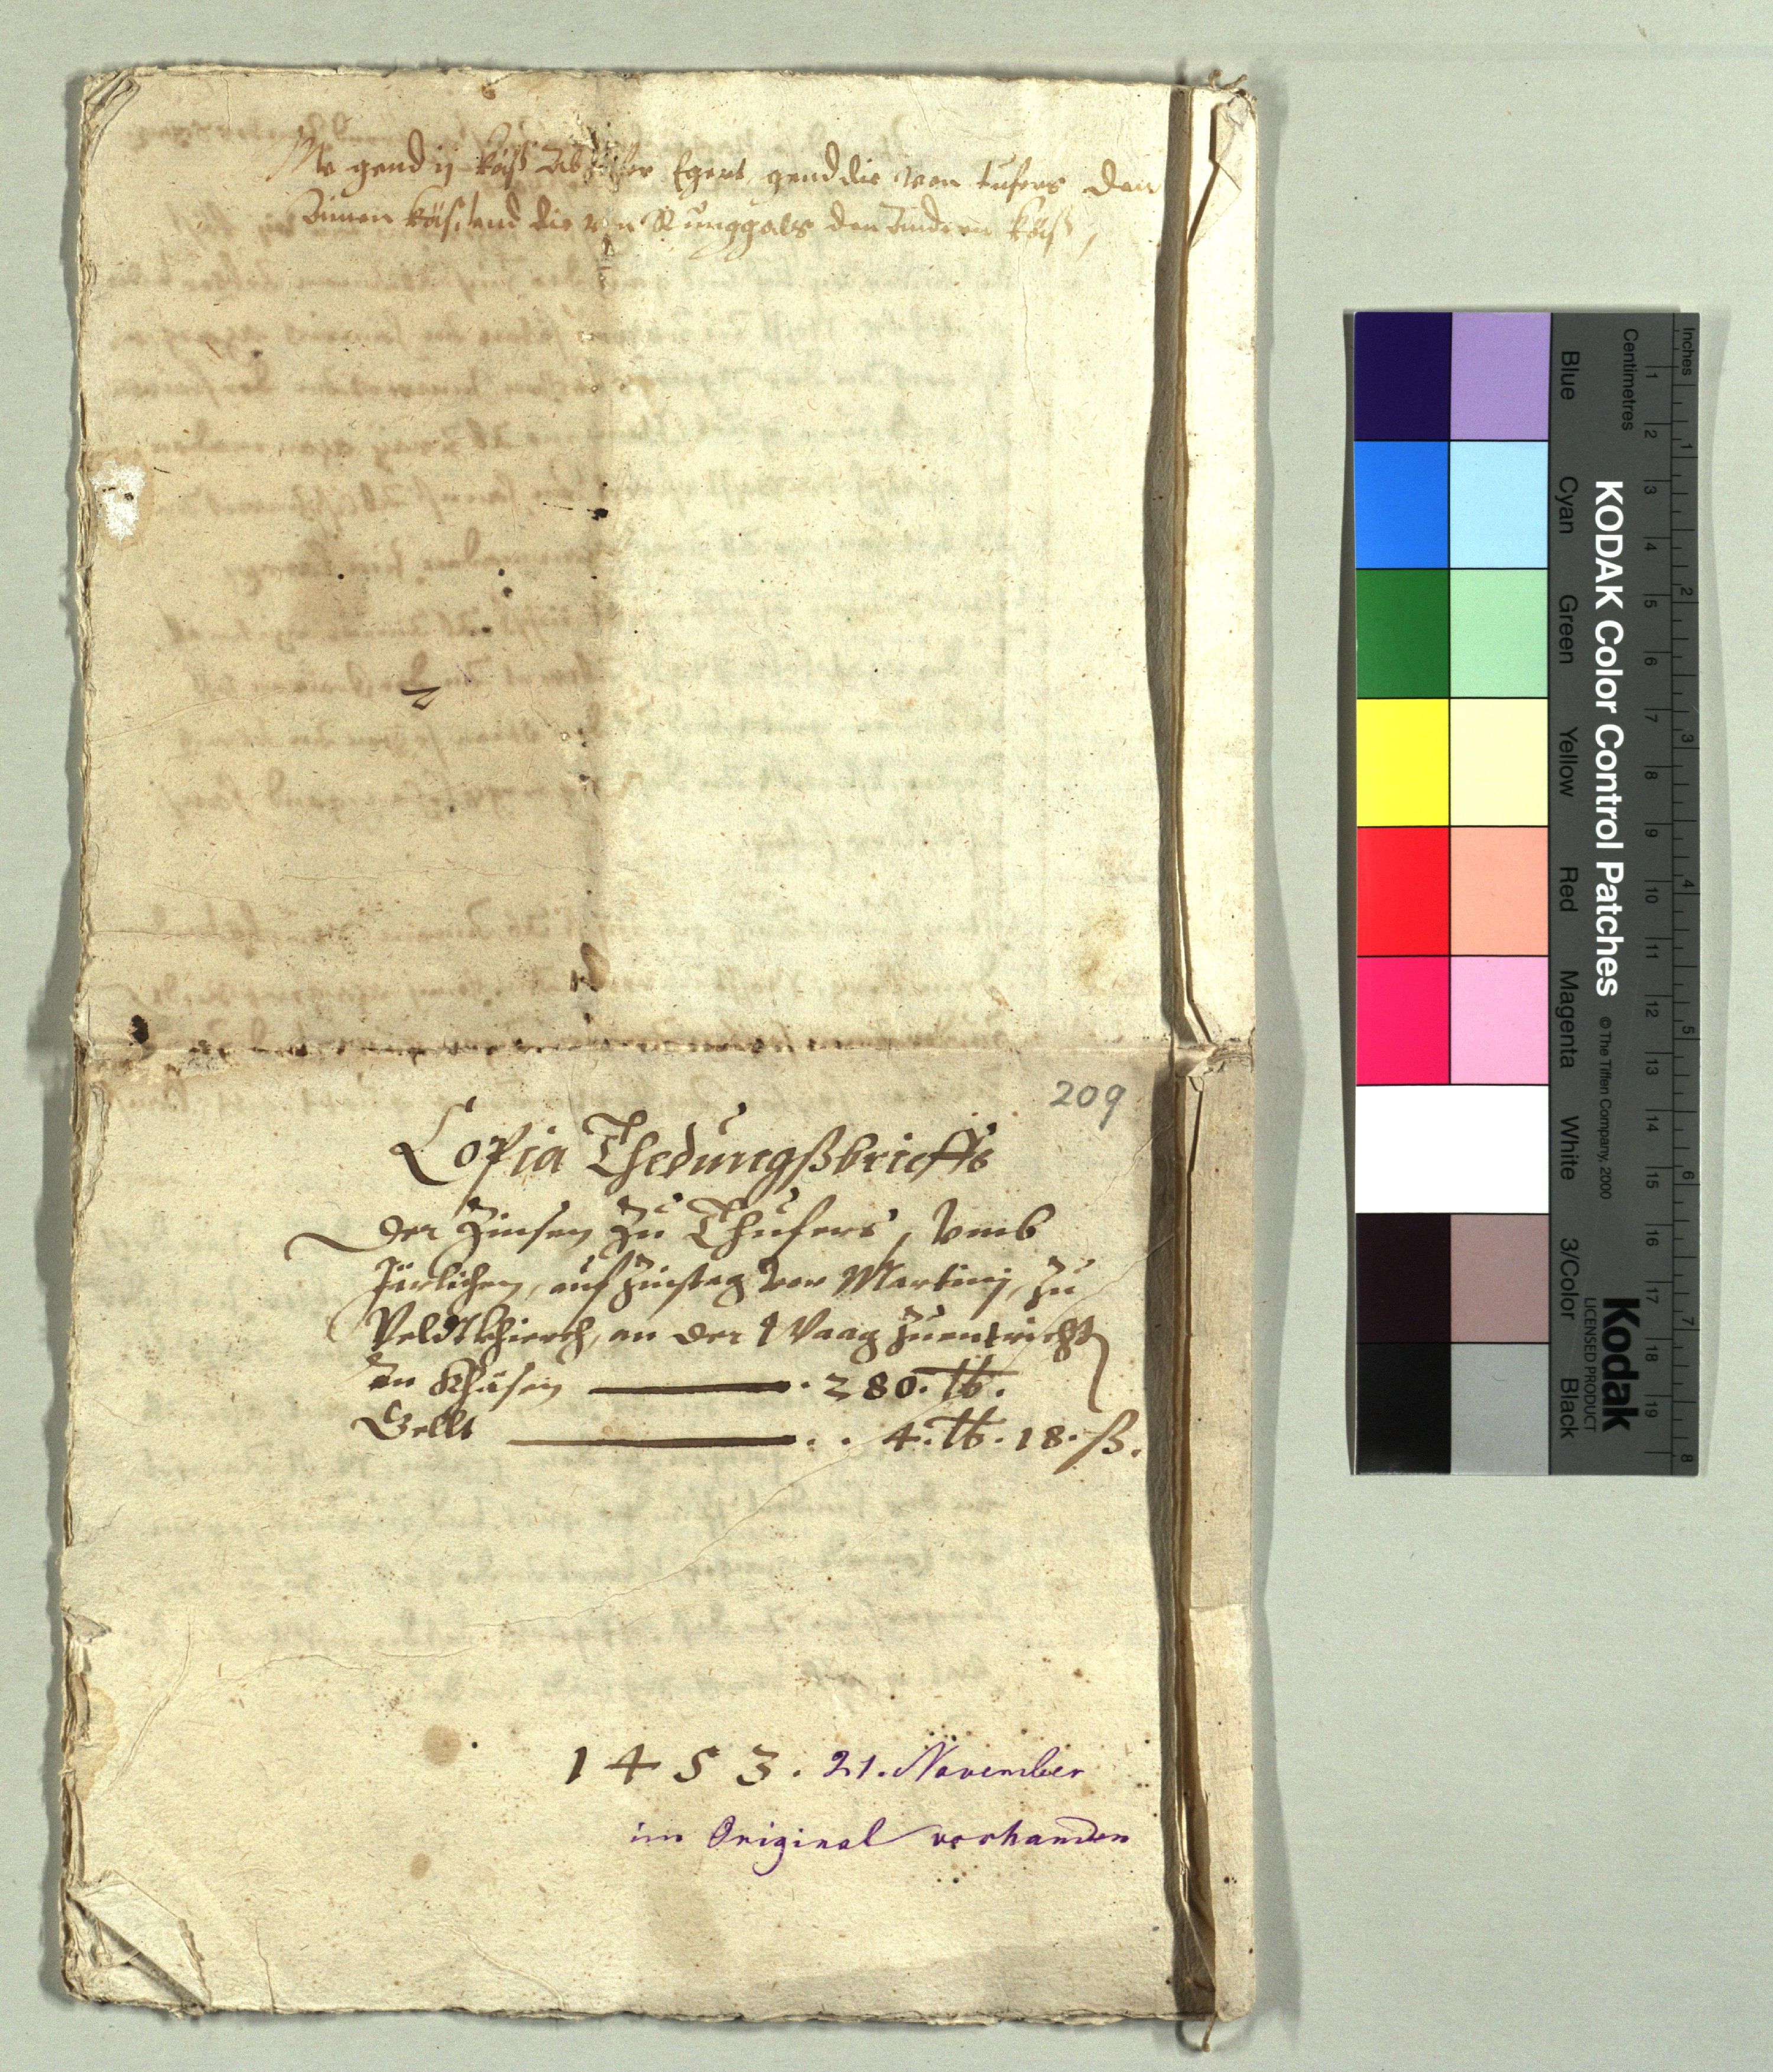 gend ij käß ab der Egert, gend die von tufers den
ainen käs, und die von Runggals den andren käß,
209
Copia Thedungßbrieffs
der Zinsen Zu Thufers, vmb
Järlichen, auf Zinstag vor Martinj, Zu
Veldtkhierch, an der Waag Zuentricht
An Khäsen . 280. lb.
Gellt . . 4. lb. 18. ß.
1453. 21. November
im Original vorhanden
Inches
Centimetres
1 2 3 4 5 6 7 8
1 2 3 4 5 6 7 8 9 10 11 12 13 14 15 16 17 18 19
Blue Cyan Green Yellow Red Magenta White 3/Color Black
KODAK Color Control Patches © The Tiffen Company, 2000
Kodak
LICENSED PRODUCT